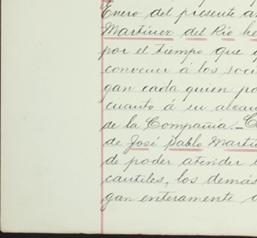 Enero del presente a
Martinez del Rio h
por el tiempo que q
convenir á los soci
gan cada quien po
cuanto á su alcan
de la Compañia._ C
de José Pablo Marti
de poder atender
cantiles, los demás
gan enteramente a